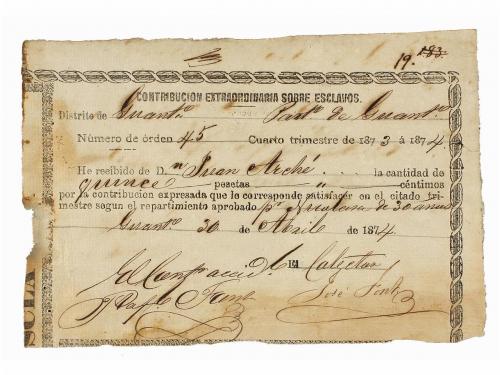 19. 183
CONTRIBUCION EXTRAORDINARIA SOBRE ESCLAVOS.
Distrito de Guantº Partº de Guantº
Número de órden 45 Cuarto trimestre de 1873 á 1874
He recibido de D.n Juan Arché la cantidad de
quince pesetas " céntimos
por la contribucion expresada que le corresponde satisfacer en el citado tri-
mestre segun el repartimiento aprobado pr de 30 años
Guantº 30 de Abril de 1874
El El Colector
José Font